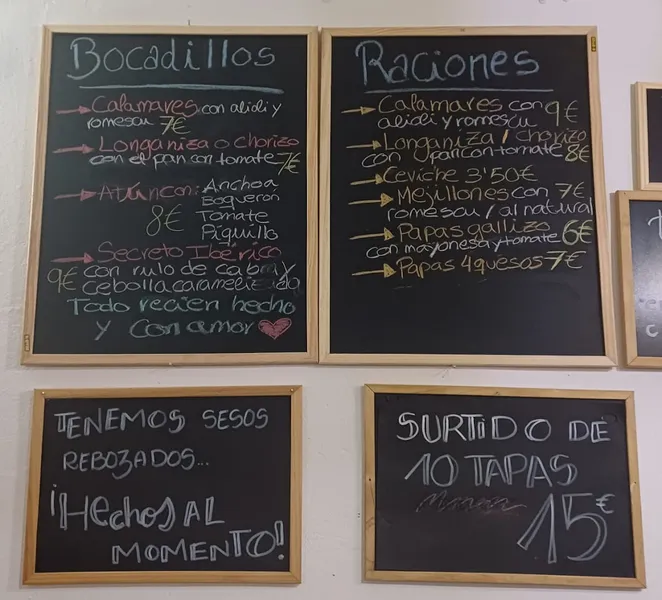 Bocadillos
Calamares con alioli y
romescu 7€
Longaniza o chorizo
con el pan con tomate 7€
Atún con: Anchoa
Boqueron
8€ Tomate
Piquillo
Secreto Ibérico
9€ con rulo de cabra y
cebolla
Todo recien hecho
y con amor
Raciones
Calamares con 9€
alioli y romescu
Longaniza / chorizo
con pan con tomate 8€
Ceviche 3'50€
Mejillones con 7€
romescu / al natural
Papas gallizo 6€
con mayonesa y tomate
Papas 4 quesos 7€
TENEMOS SESOS
REBOZADOS...
¡HECHOS AL
MOMENTO!
SURTIDO DE
10 TAPAS
15€